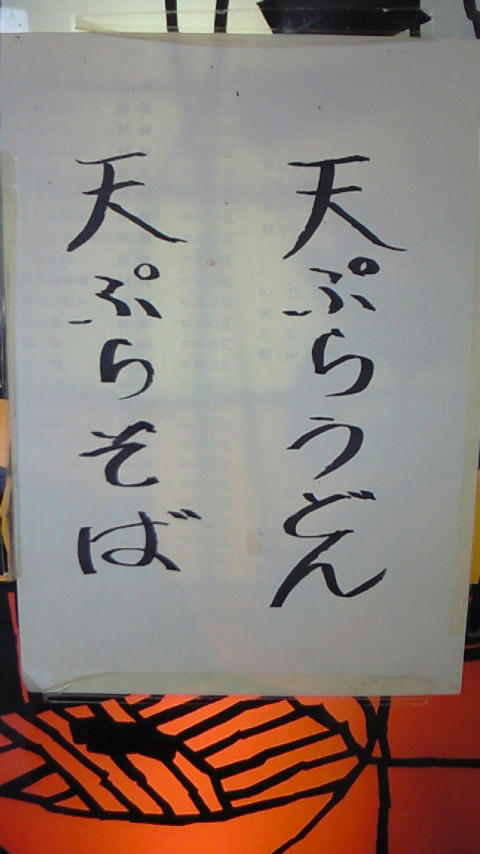 天ぷらうどん
天ぷらそば